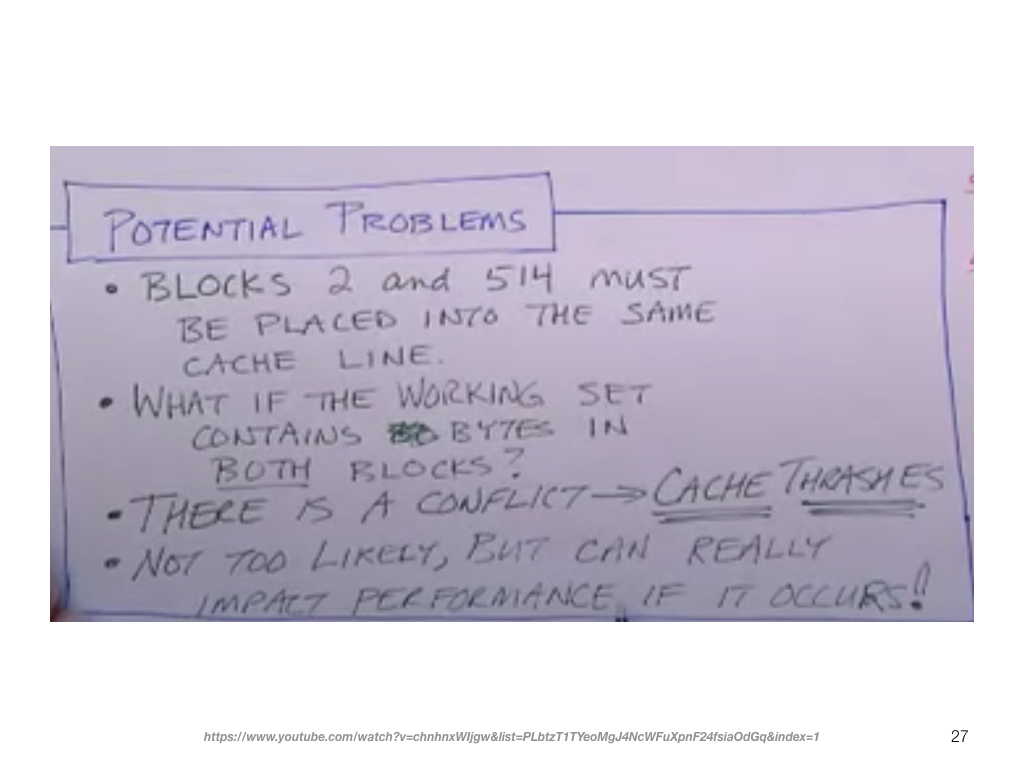 POTENTIAL PROBLEMS
• BLOCKS 2 and 514 MUST
BE PLACED INTO THE SAME
CACHE LINE.
• WHAT IF THE WORKING SET
CONTAINS BYTES IN
BOTH BLOCKS?
• THERE IS A CONFLICT → CACHE THRASHES
• NOT TOO LIKELY, BUT CAN REALLY
IMPACT PERFORMANCE IF IT OCCURS!!
https://www.youtube.com/watch?v=chnhnxWIjgw&list=PLbtzT1TYeoMgJ4NcWFuXpnF24fsiaOdGq&index=1
27